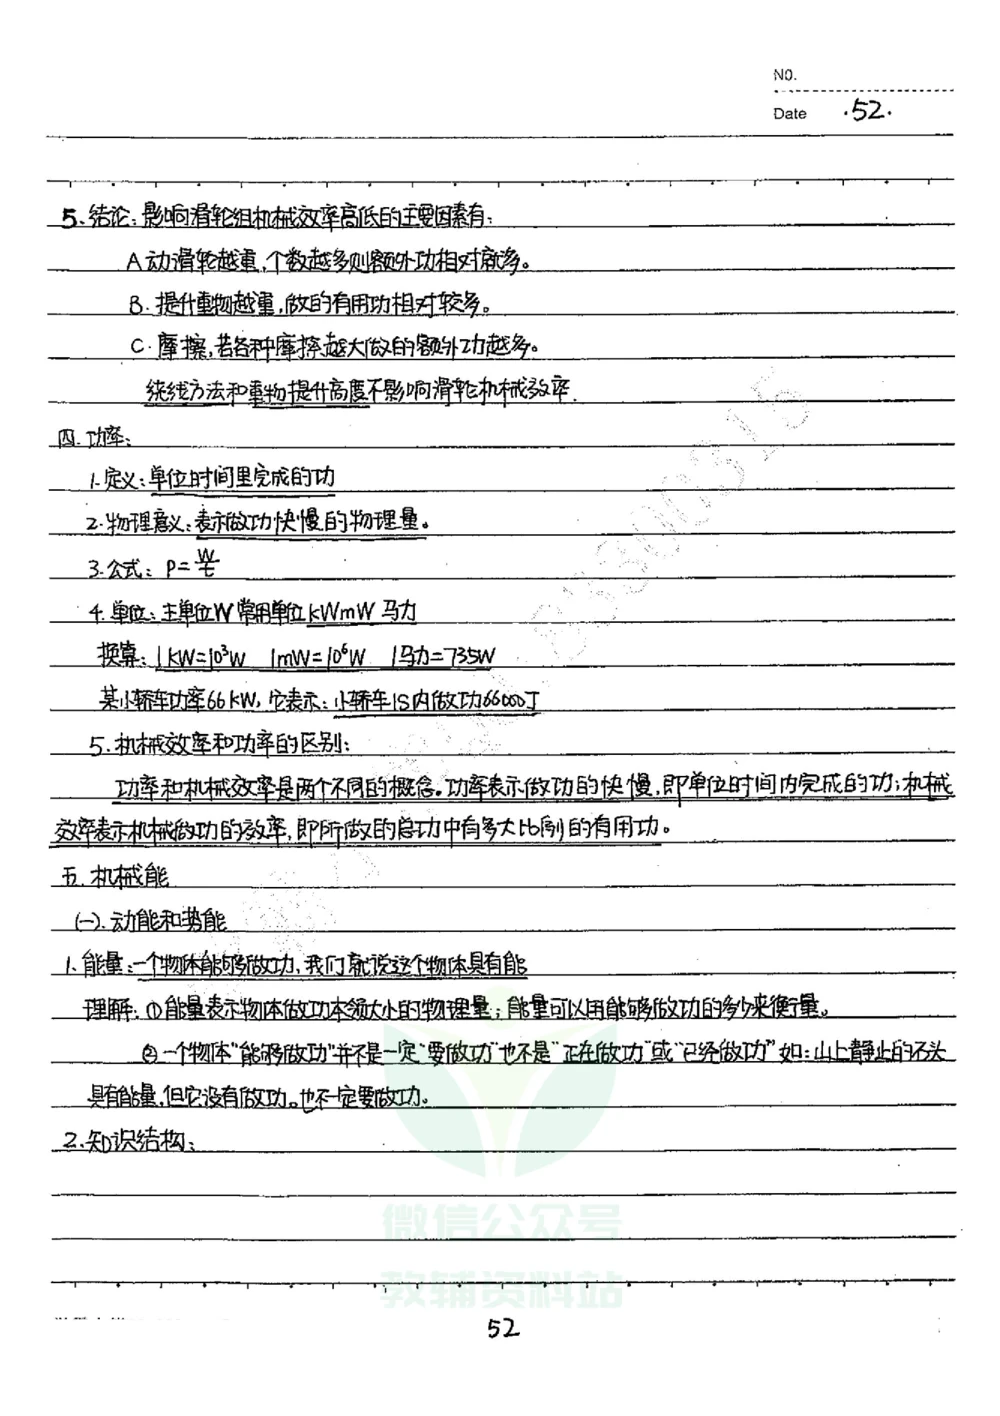 NO.
Date .52.
5.结论:影响滑轮组机械效率高低的主要因素有:
A动滑轮越重,个数越多则额外功相对就多。
B.提升重物越重,做的有用功相对较多。
C.摩擦,若各种摩擦越大做的额外功越多。
绕线方法和重物提升高度不影响滑轮机械效率.
四.功率:
1.定义:单位时间里完成的功
2.物理意义:表示做功快慢的物理量。
3.公式:P=W/t
4.单位:主单位W 常用单位kWmW 马力
换算:1kW=10³W 1mW=10⁶W 1马力=735W
某小轿车功率66kW,它表示:小轿车1S内做功66000J
5.机械效率和功率的区别:
功率和机械效率是两个不同的概念。功率表示做功的快慢,即单位时间内完成的功;机械
效率表示机械做功的效率,即所做的总功中有多大比例的有用功。
五.机械能
(一).动能和势能
1.能量:一个物体能够做功,我们就说这个物体具有能
理解:①能量表示物体做功本领大小的物理量;能量可以用能够做功的多少来衡量。
②一个物体"能够做功"并不是一定"要做功"也不是"正在做功"或"已经做功"如:山上静止的石头
具有能量,但它没有做功。也不一定要做功.
2.知识结构:
微信公众号
教辅资料站
52